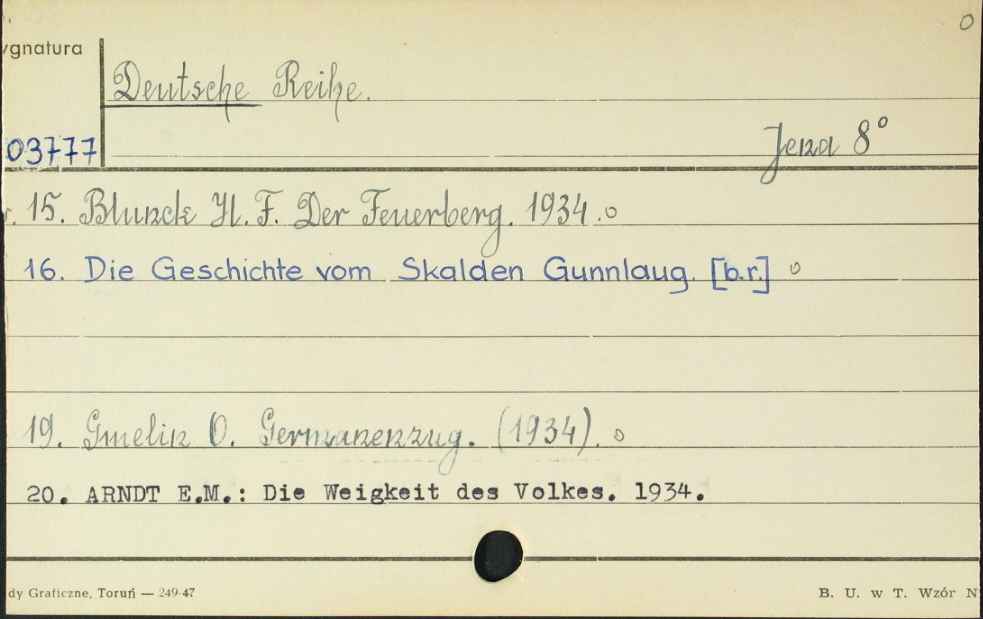 ygnatura
Deutsche Reihe.
03777
Jena 8°
15. Blunck H. F. Der Feuerberg. 1934.
16. Die Geschichte vom Skalden Gunnlaug. [b.r.]
19. Gmelin O. Germanenzug. (1934).
20. ARNDT E.M.: Die Weigkeit des Volkes. 1934.
dy Graficzne, Toruń — 249-47
B. U. w T. Wzór N